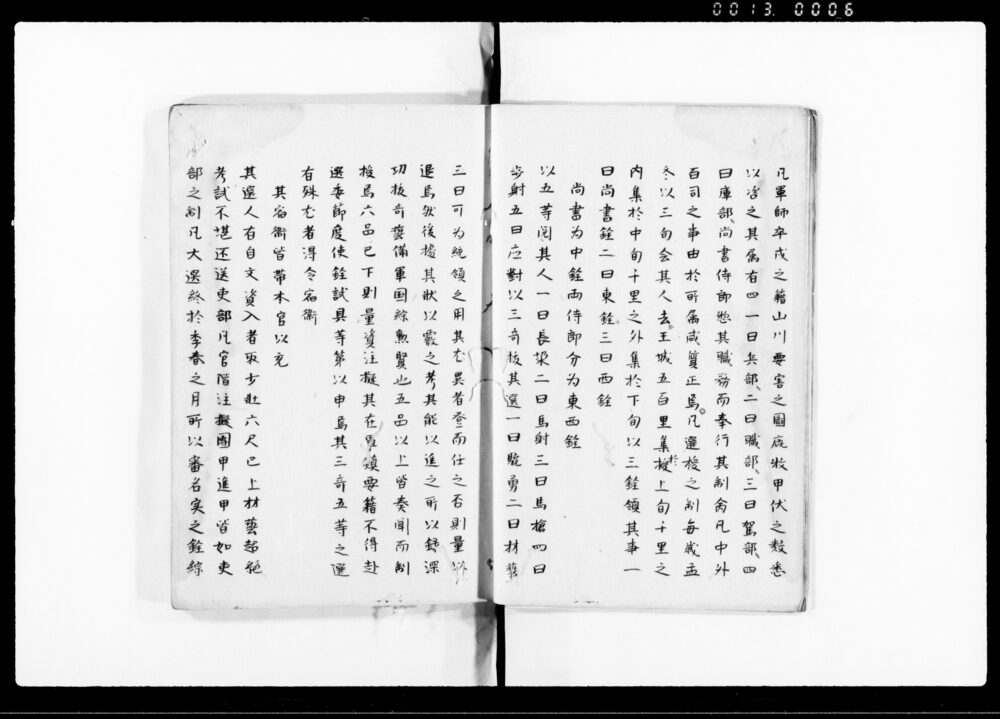 0013. 0006
凡軍師卒戍之籍山川要害之圖廐牧甲仗之数悉
以咨之其属有四一曰兵部、二曰職部、三曰駕部、四
曰庫部、尚書侍郎惣其職務而奉行其制命凡中外
百司之事由於所属咸質正焉凡選授之制毎歳孟
冬以三旬会其人去王城五百里集於上旬千里之
内集於中旬千里之外集於下旬以三銓領其事一
曰尚書銓二曰東銓三曰西銓
尚書為中銓両侍郎分為東西銓
以五等閲其人一曰長垜二曰馬射三曰馬槍四曰
歩射五曰応對以三奇抜其選一曰驍勇二曰材藝
三曰可為統領之用其尤異者登而任之否則量以
退焉然後據其狀以覈之考其能以進之所以録深
功抜奇藝備軍国綜勲賢也五品以上皆奏聞而制
授焉六品已下則量資注擬其在軍鎮要籍不得赴
選委節度使銓試具等第以申焉其三奇五等之選
有殊尤者得令宿衛
其宿衛皆帯本官以充
其選人有自文資入者取少壮六尺已上材藝超絶
考試不堪还送吏部凡官階注擬團甲進甲皆如吏
部之制凡大選終於季春之月所以審名实之銓綜